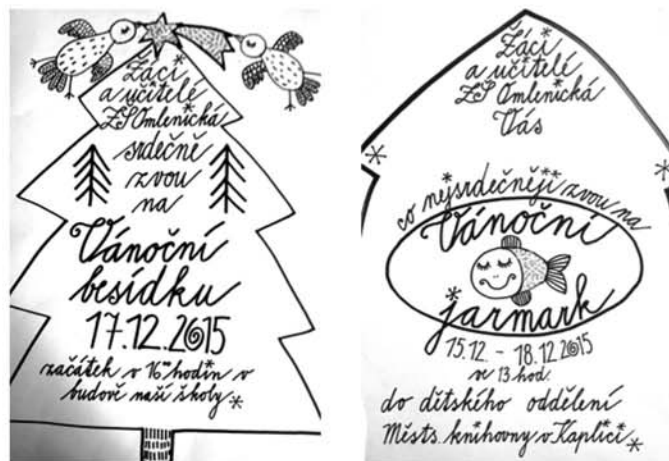 Žáci
a učitelé
ZŠ Omlenická
srdečně
zvou
na
Vánoční
besídku
17.12.2015
začátek v 16°° hodin v
budově naší školy
Žáci
a učitelé
ZŠ Omlenická
Vás
co nejsrdečněji zvou na
Vánoční
jarmark
15.12. - 18.12.2015
ve 13 hod.
do dětského oddělení
Městs. knihovny v Kaplici